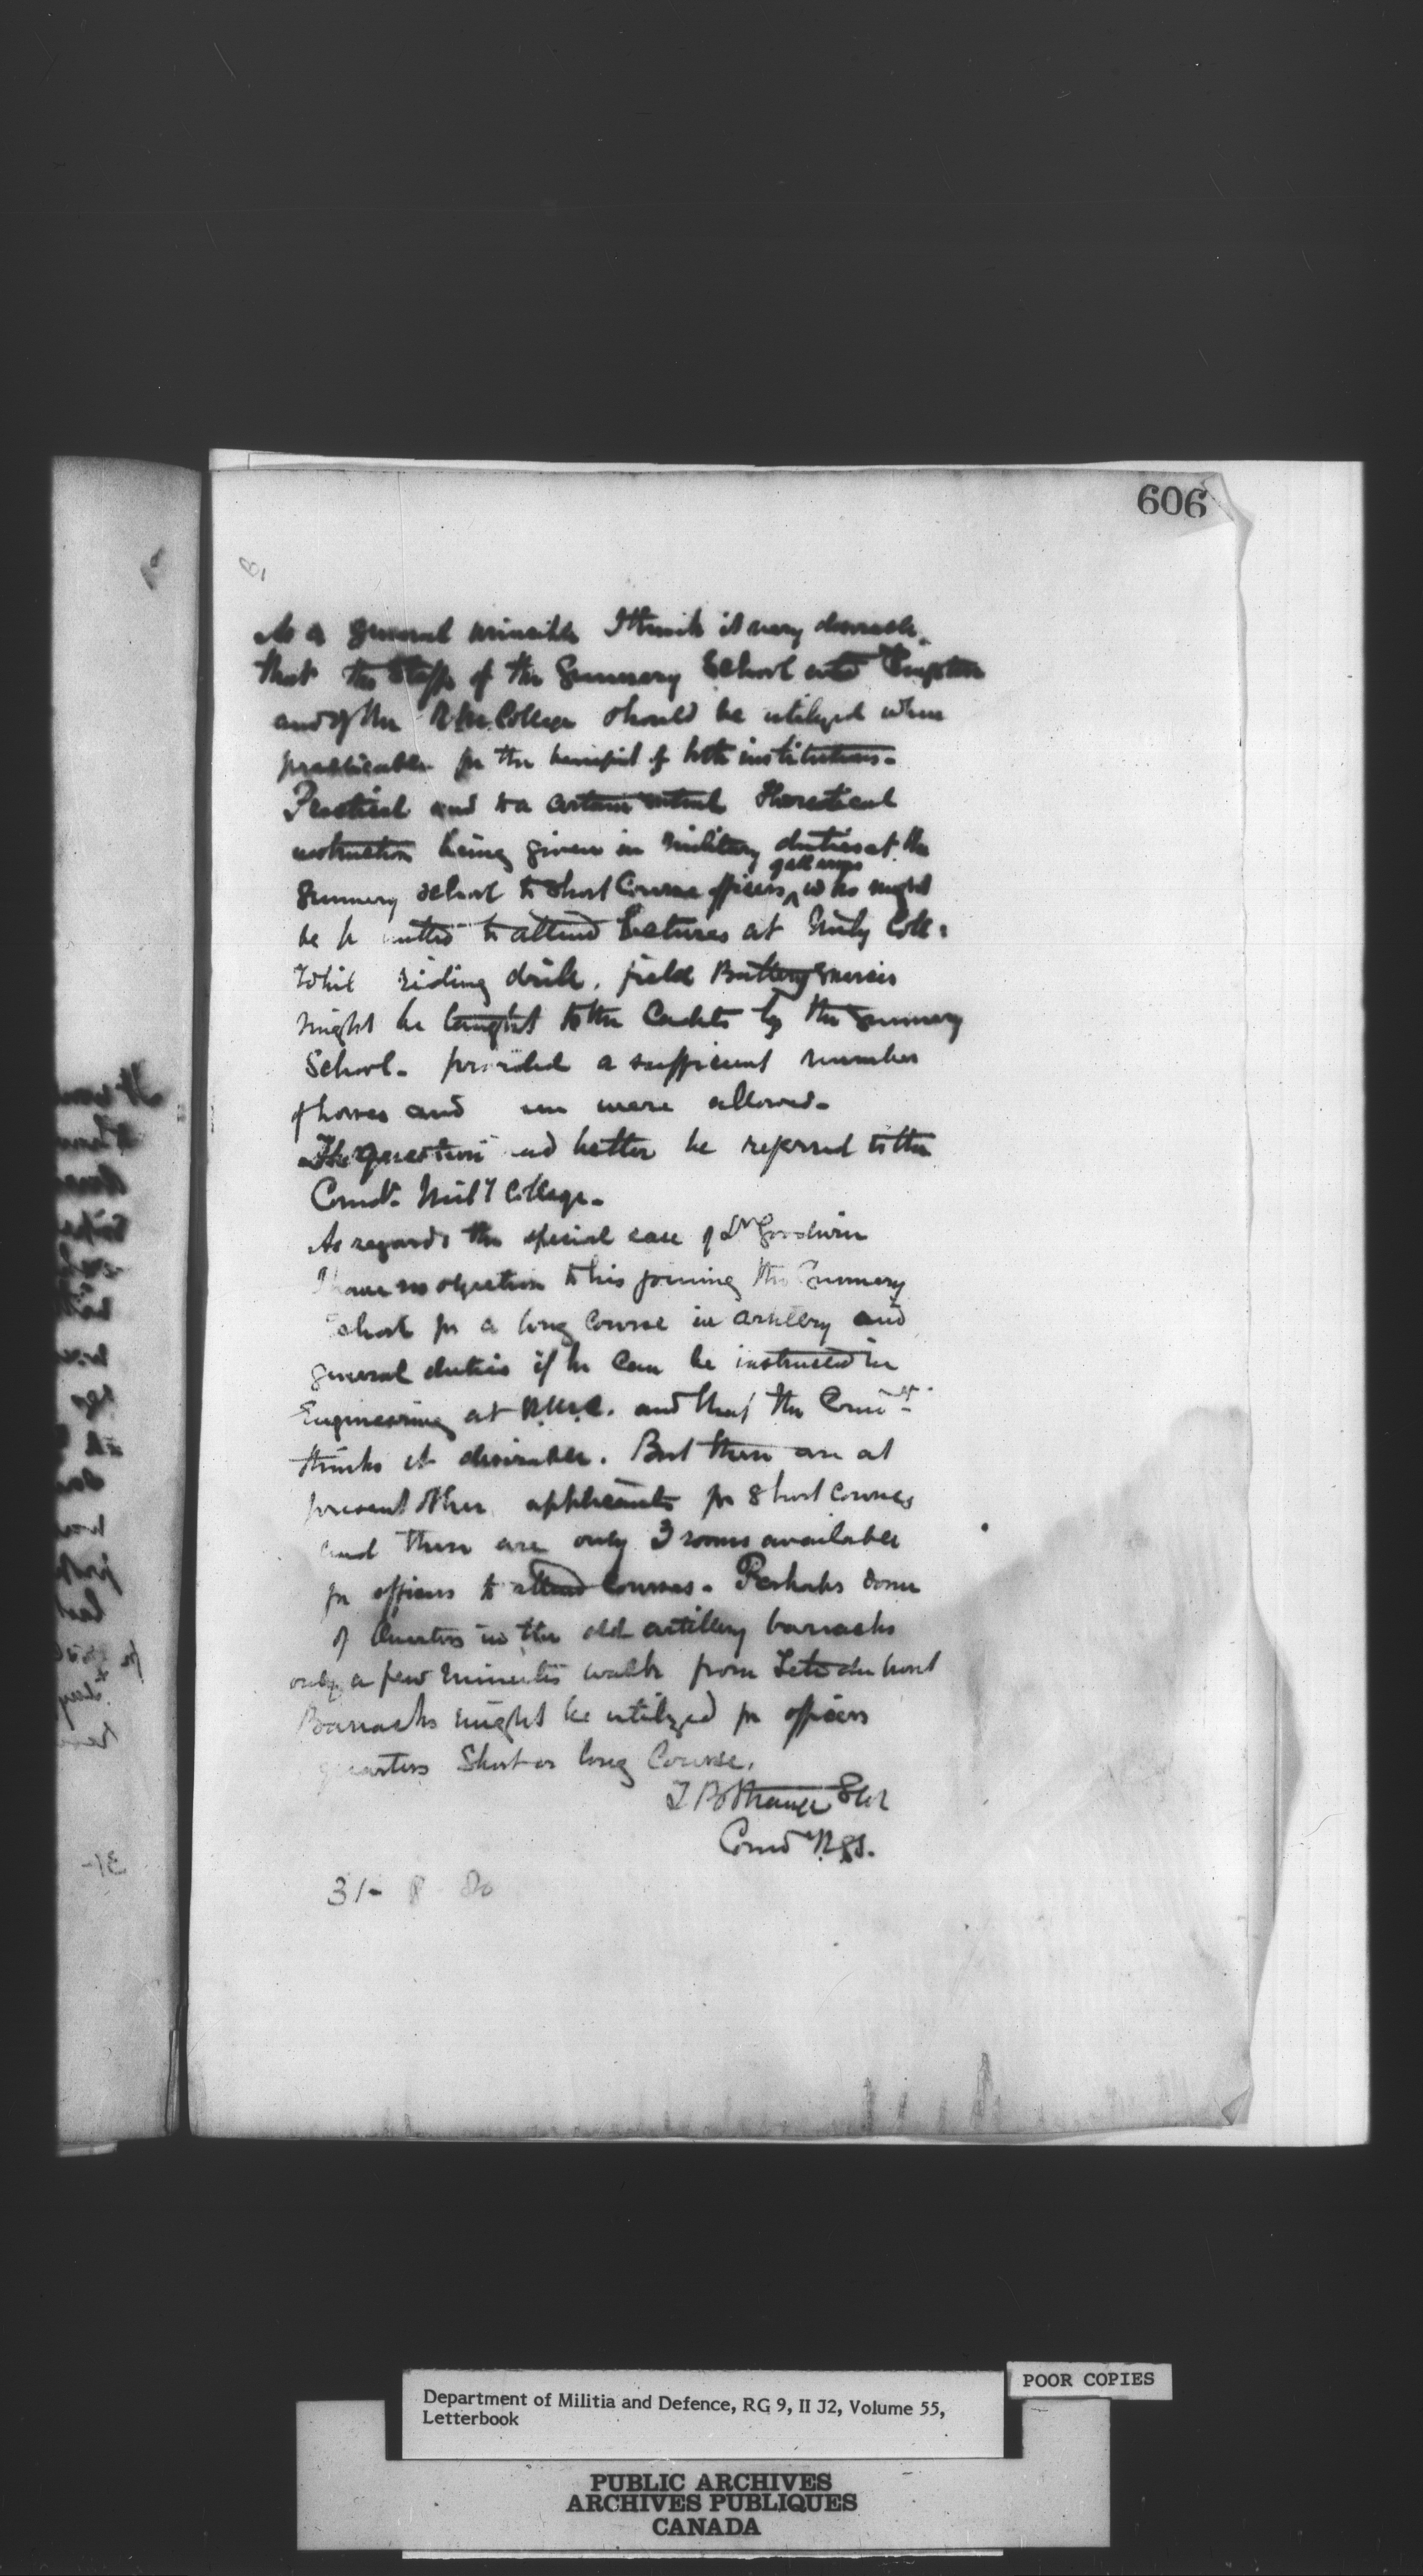 606
As a general principle I think it very desirable
that the Staffs of the Gunnery School at Kingston
and of the R.M. College should be utilized when
practicable for the benefit of both institutions -
Practical and to a certain extent theoretical
instruction being given in Military duties at the
Gunnery School to Short Course officers, who might
be permitted to attend Lectures at Mily Coll:
Whil riding drill, field Battery exercises
might be taught to the Cadets by the Gunnery
School - provided a sufficient number
of horses and men were allowed -
The question had better be referred to the
Comdt. Mil'y College -
As regards the special case of Lt Goodwin
I have no objection to his joining the Gunnery
School for a long Course in artillery and
general duties if he can be instructed in
Engineering at R.M.C. and that the Comdt
thinks it desirable. But there are at
present other applicants for Short Courses
and there are only 3 rooms available
for officers to attend Courses - Perhaps some
of Quarters in the old artillery barracks
only a few minutes walk from Tete du pont
Barracks might be utilized for officers
quarters Short or long Course.
T B Strange
31 - 8 80
POOR COPIES
Department of Militia and Defence, RG 9, II J2, Volume 55,
Letterbook
PUBLIC ARCHIVES
ARCHIVES PUBLIQUES
CANADA